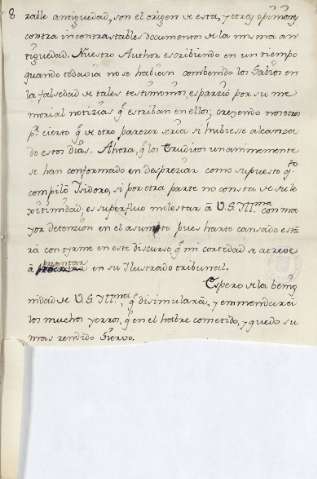 8 ralle antiguedad, son el origen de esta, y otras opiniones
contra incontrastables documentos de la misma an-
tiguedad. Nuestro Author escribiendo en un tiempo
quando todavia no se habian combenido los Sabios en
la falsedad de tales testimonios, esparzio por su me-
morial notizias q̃ estriban en ellos; creyendo nosotros
p.r cierto q̃ de otro parezer seria si hubiese alcanza-
do estos dias. Ahora, q̃ los Eruditos unanimemente
se han conformado en despreziar como supuesto q.to
compiló Isidoro, si por otra parte no consta de su le-
gitimidad, es superfluo molestar á V.S. Ill.ma con ma-
yor detenzion en el asumpto pues harto cansado esta-
rá con orme en este discurso q̃ mi cortedad se atreve
á presentar en su Ilustrado tribunal.
Espero de la benig-
nidad de V.S. Ill.ma q̃ disimulará, y enmendará
los muchos yerros, q̃ en el habre cometido, y quedo su
mas rendido Siervo.